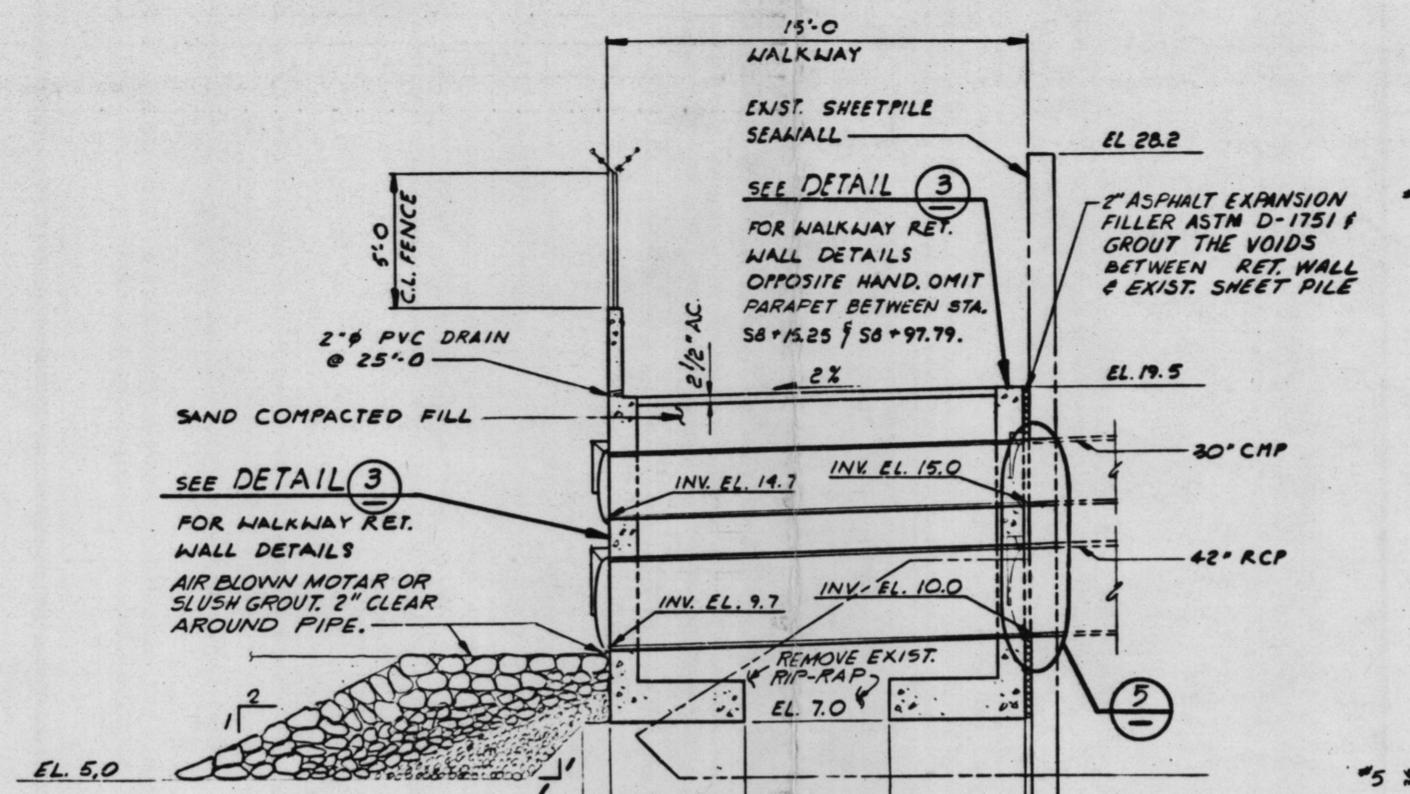 15'-0
WALKWAY
EXIST. SHEETPILE
SEAWALL
EL 28.2
SEE DETAIL 3
FOR WALKWAY RET.
WALL DETAILS
OPPOSITE HAND. OMIT
PARAPET BETWEEN STA.
S8+15.25 & S8+97.79.
2" ASPHALT EXPANSION
FILLER ASTM D-1751 &
GROUT THE VOIDS
BETWEEN RET. WALL
& EXIST. SHEET PILE
5'-0
C.L. FENCE
2"φ PVC DRAIN
@ 25'-0
2 1/2" A.C.
2%
EL. 19.5
SAND COMPACTED FILL
30" CMP
SEE DETAIL 3
INV. EL. 14.7
INV. EL. 15.0
FOR WALKWAY RET.
WALL DETAILS
42" RCP
AIR BLOWN MOTAR OR
SLUSH GROUT. 2" CLEAR
AROUND PIPE.
INV. EL. 9.7
INV. EL. 10.0
REMOVE EXIST.
RIP-RAP
EL. 7.0
5
2
1
EL. 5.0
1
#5